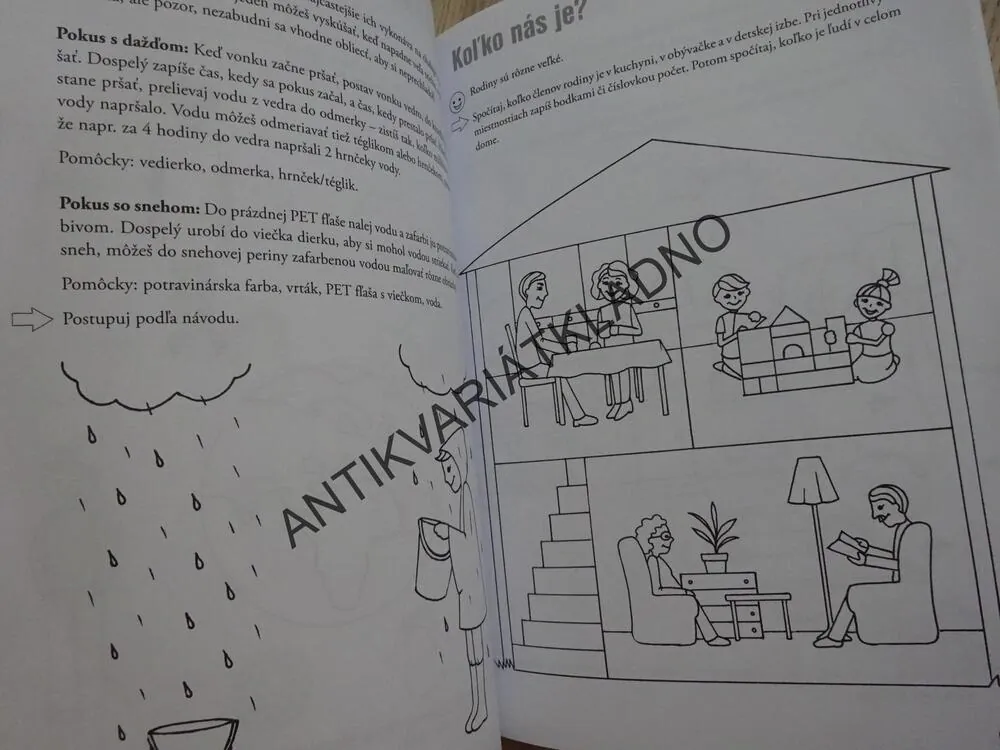 najčastejšie ich vykonáva na
jeden môžeš vyskúšať, keď napadne veľa
ale pozor, nezabudni sa vhodne obliecť, aby si neprechladol
Pokus s dažďom: Keď vonku začne pršať, postav vonku vedro, do
šať. Dospelý zapíše čas, kedy sa pokus začal, a čas, kedy prestalo
stane pršať, prelievaj vodu z vedra do odmerky – zistíš tak, koľko
vody napršalo. Vodu môžeš odmeriavať tiež téglikom alebo hrnčekom
že napr. za 4 hodiny do vedra napršali 2 hrnčeky vody.
Pomôcky: vedierko, odmerka, hrnček/téglik.
Pokus so snehom: Do prázdnej PET fľaše nalej vodu a zafarbi ju
bivom. Dospelý urobí do viečka dierku, aby si mohol vodou striekať.
sneh, môžeš do snehovej periny zafarbenou vodou maľovať rôzne
Pomôcky: potravinárska farba, vrták, PET fľaša s viečkom, voda.
Postupuj podľa návodu.
Koľko nás je?
Rodiny sú rôzne veľké.
Spočítaj, koľko členov rodiny je v kuchyni, v obývačke a v detskej izbe. Pri jednotlivých
miestnostiach zapíš bodkami či číslovkou počet. Potom spočítaj, koľko je ľudí v celom
dome.
ANTIKVARIÁTKLADNO